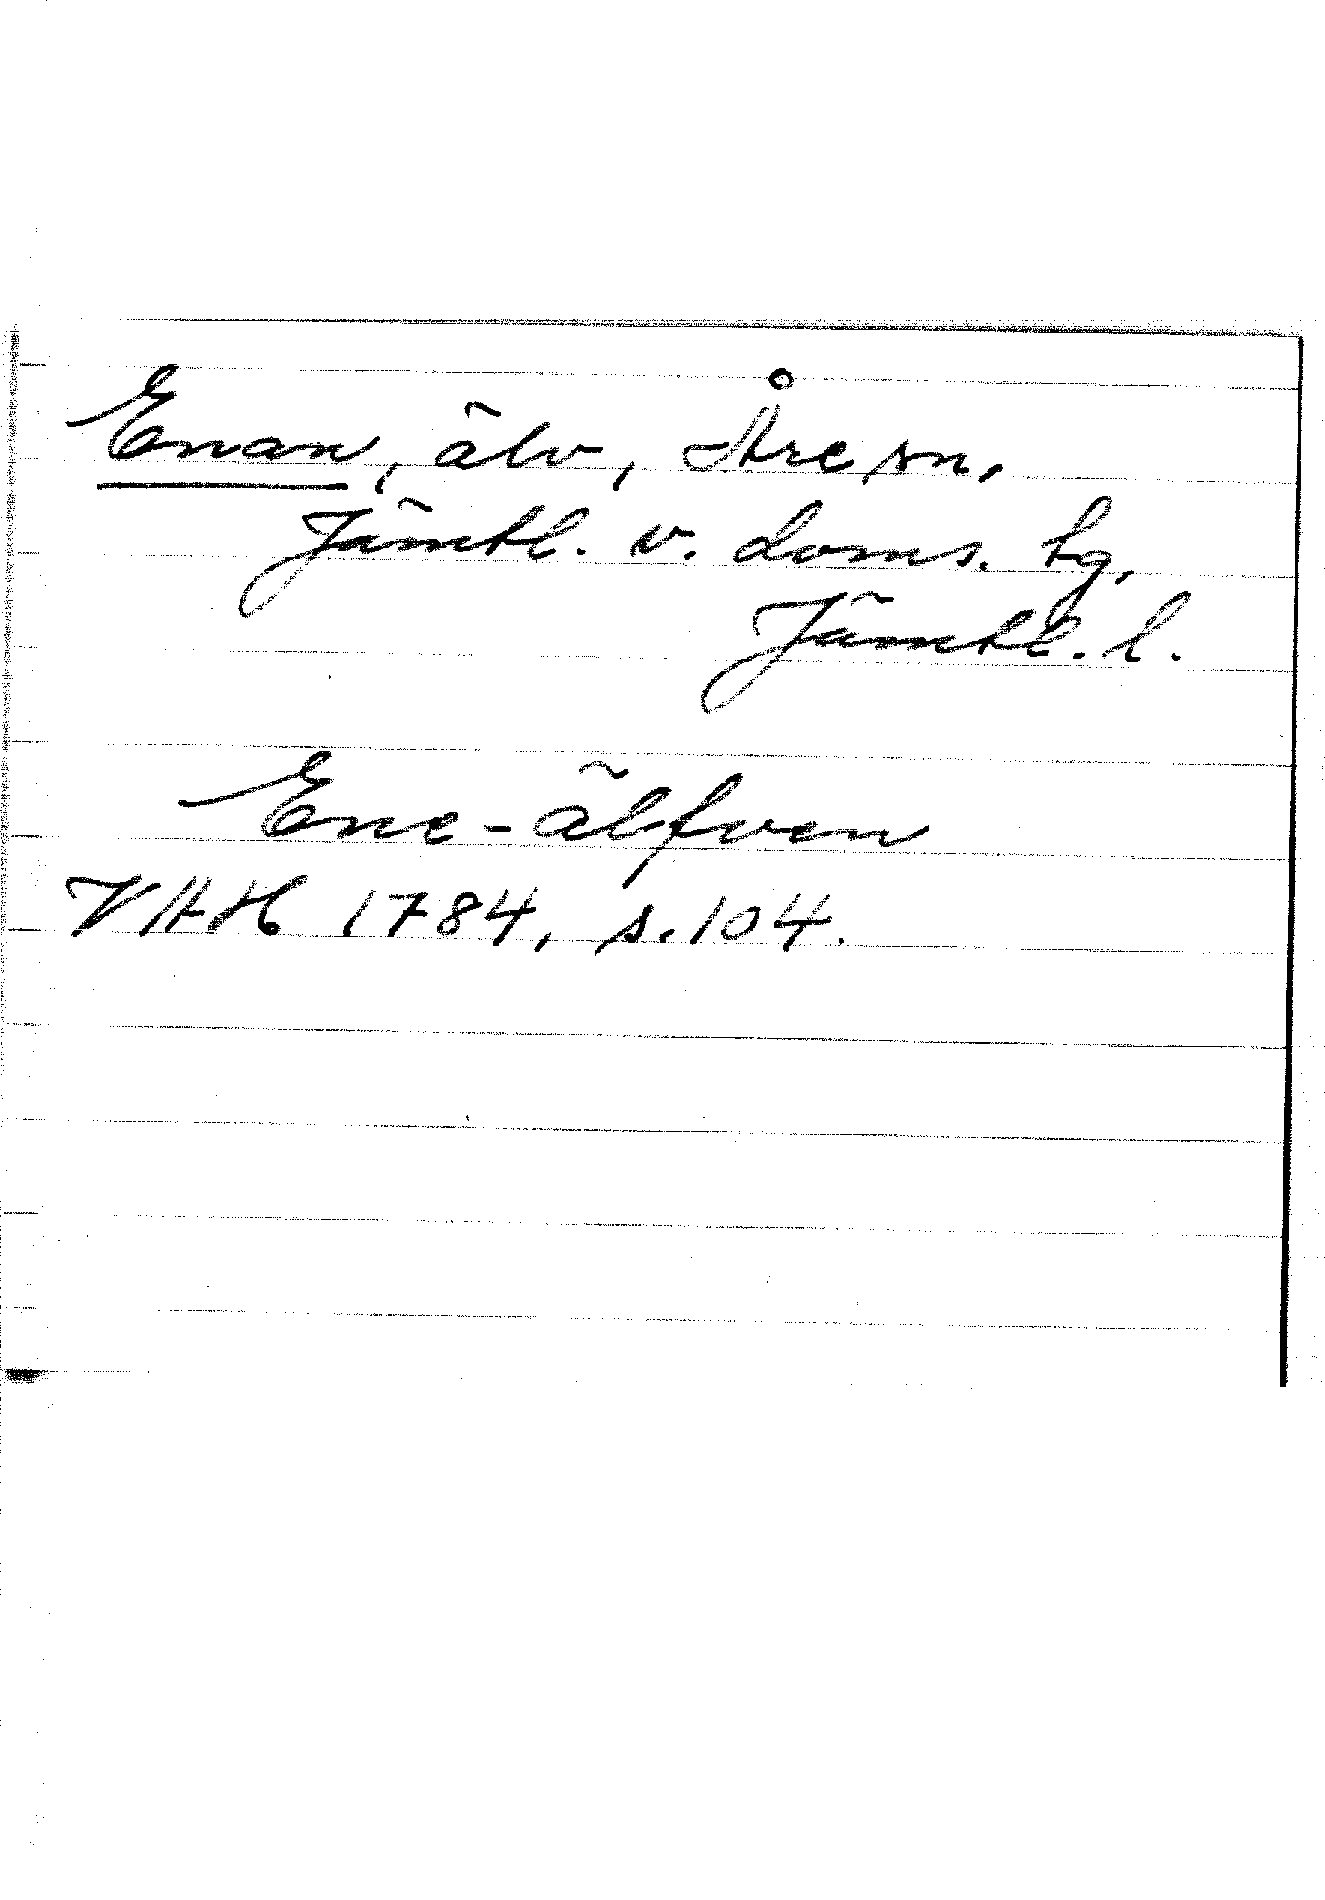 Enan, älv, Åre sn,
Jämtl. v. doms. tg,
Jämtl. l.
Ene-älfven
VAH 1784, s. 104.